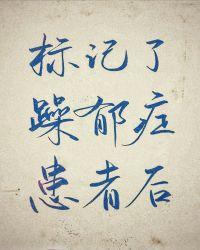 标记了
躁郁症
患者后